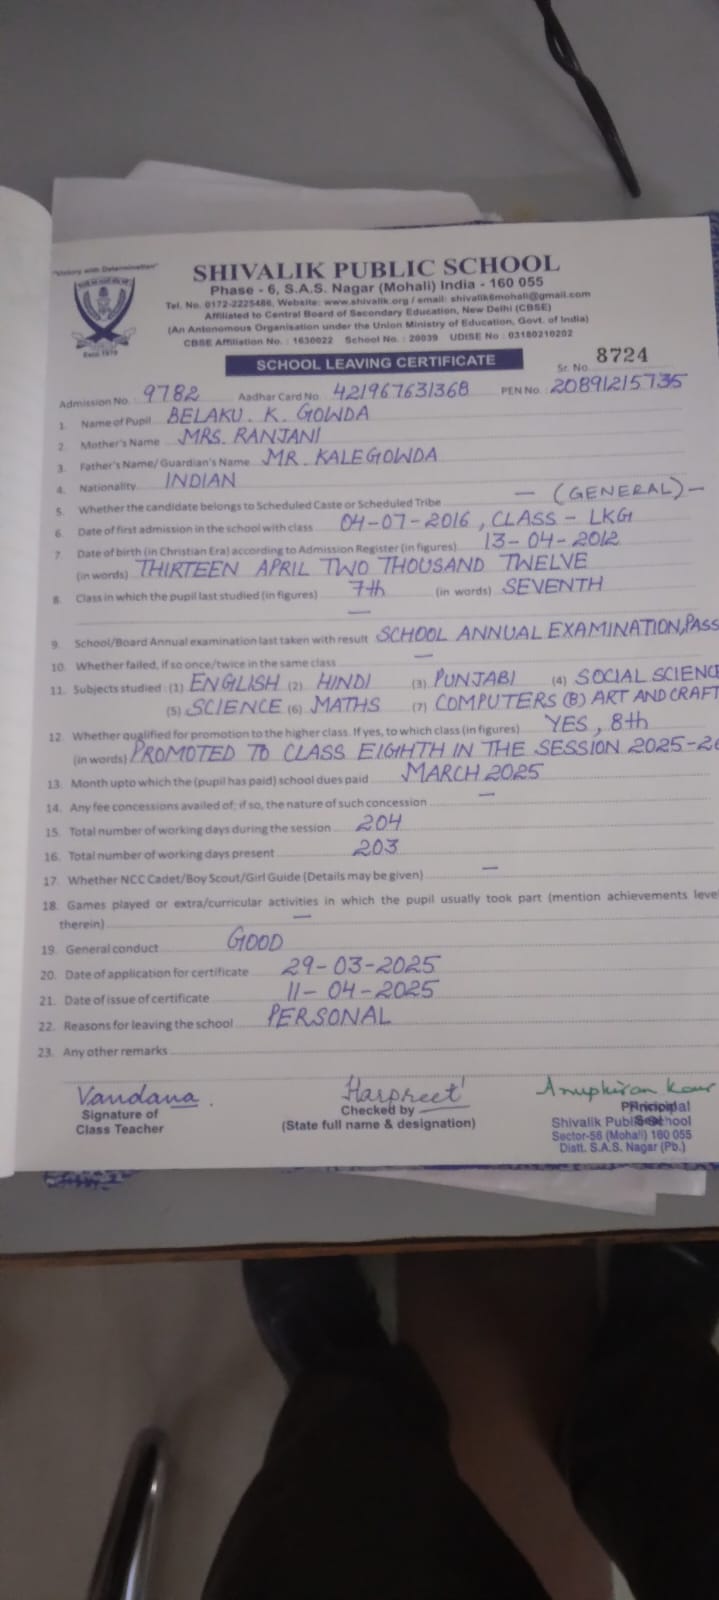 "Victory with Determination"
SHIVALIK PUBLIC SCHOOL
Phase - 6, S.A.S. Nagar (Mohali) India - 160 055
Tel. No. 0172-2225486, Website: www.shivalik.org / email: shivalik6mohali@gmail.com
Affiliated to Central Board of Secondary Education, New Delhi (CBSE)
(An Antonomous Organisation under the Union Ministry of Education, Govt. of India)
CBSE Affiliation No. : 1630022 School No. : 20039 UDISE No : 03180210202
SCHOOL LEAVING CERTIFICATE
Sr. No. 8724
Admission No. 9782 Aadhar Card No. 421967631368 PEN No. 20891215735
1. Name of Pupil BELAKU. K. GOWDA
2. Mother's Name MRS. RANJANI
3. Father's Name/ Guardian's Name MR. KALEGOWDA
4. Nationality INDIAN
5. Whether the candidate belongs to Scheduled Caste or Scheduled Tribe — (GENERAL) —
6. Date of first admission in the school with class 04-07-2016, CLASS - LKG
7. Date of birth (in Christian Era) according to Admission Register (in figures) 13-04-2012
(in words) THIRTEEN APRIL TWO THOUSAND TWELVE
8. Class in which the pupil last studied (in figures) 7th (in words) SEVENTH
—
9. School/Board Annual examination last taken with result SCHOOL ANNUAL EXAMINATION, PASS
10. Whether failed, if so once/twice in the same class —
11. Subjects studied : (1) ENGLISH (2) HINDI (3) PUNJABI (4) SOCIAL SCIENCE
(5) SCIENCE (6) MATHS (7) COMPUTERS (8) ART AND CRAFT
12. Whether qualified for promotion to the higher class. If yes, to which class (in figures) YES, 8th
(in words) PROMOTED TO CLASS EIGHTH IN THE SESSION 2025-26
13. Month upto which the (pupil has paid) school dues paid MARCH 2025
14. Any fee concessions availed of; if so, the nature of such concession —
15. Total number of working days during the session 204
16. Total number of working days present 203
17. Whether NCC Cadet/Boy Scout/Girl Guide (Details may be given) —
18. Games played or extra/curricular activities in which the pupil usually took part (mention achievements leve
therein) —
19. General conduct GOOD
20. Date of application for certificate 29-03-2025
21. Date of issue of certificate 11-04-2025
22. Reasons for leaving the school PERSONAL
23. Any other remarks
Vandana Harpreet Anupkiran Kaur
Signature of Checked by Principal
Class Teacher (State full name & designation) Shivalik Public School
Sector-56 (Mohali) 160 055
Distt. S.A.S. Nagar (Pb.)